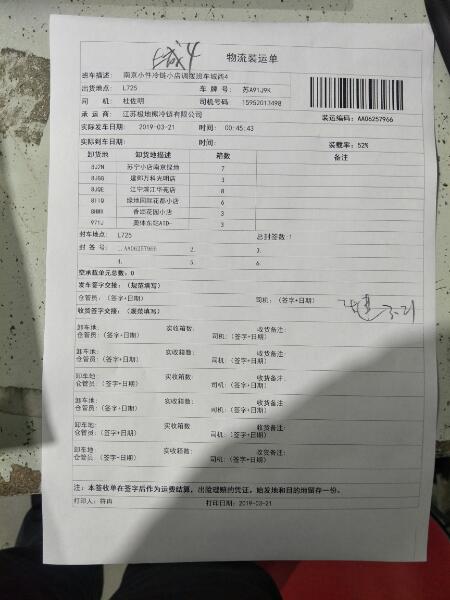 城4
物流装运单
班车描述: 南京小件冷链小店调拨班车城西4
出货地点: L725 车 牌 号: 苏A91J9K
司 机: 杜佐明 司机号码 15952013498
承 运 商: 江苏极地熊冷链有限公司 装运编码: AA06257966
实际发车日期: 2019-03-21 时间: 00:45:43
实际到车日期: 时间: 装载率: 52%
卸货地 卸货地描述 箱数 备注
8J2N 苏宁小店南京绿地 7
建邺万科光明店 3
江宁滨江华苑店 8
绿地国际花都小店 6
香颂花园小店 3
971J 3
封车地点: L725 总封签数:1
封 签 号: 1.AA06257966 2. 3.
4. 5. 6.
空承载单元总数: 0
发车签字交接: (规范填写)
仓管员: (签字+日期) 司机: (签字+日期) 3.21
收货签字交接: (规范填写)
卸车地: 实收箱数: 收货备注:
仓管员: (签字+日期) 司机: (签字+日期)
卸车地: 实收箱数: 收货备注:
仓管员: (签字+日期) 司机: (签字+日期)
卸车地: 实收箱数: 收货备注:
仓管员: (签字+日期) 司机: (签字+日期)
卸车地: 实收箱数: 收货备注:
仓管员: (签字+日期) 司机: (签字+日期)
卸车地: 实收箱数: 收货备注:
仓管员: (签字+日期) 司机: (签字+日期)
卸车地: 实收箱数: 收货备注:
仓管员: (签字+日期) 司机: (签字+日期)
注: 本签收单在签字后作为运费结算, 出险理赔的凭证, 始发地和目的地留存一份。
打印人: 符冉 打印日期: 2019-03-21